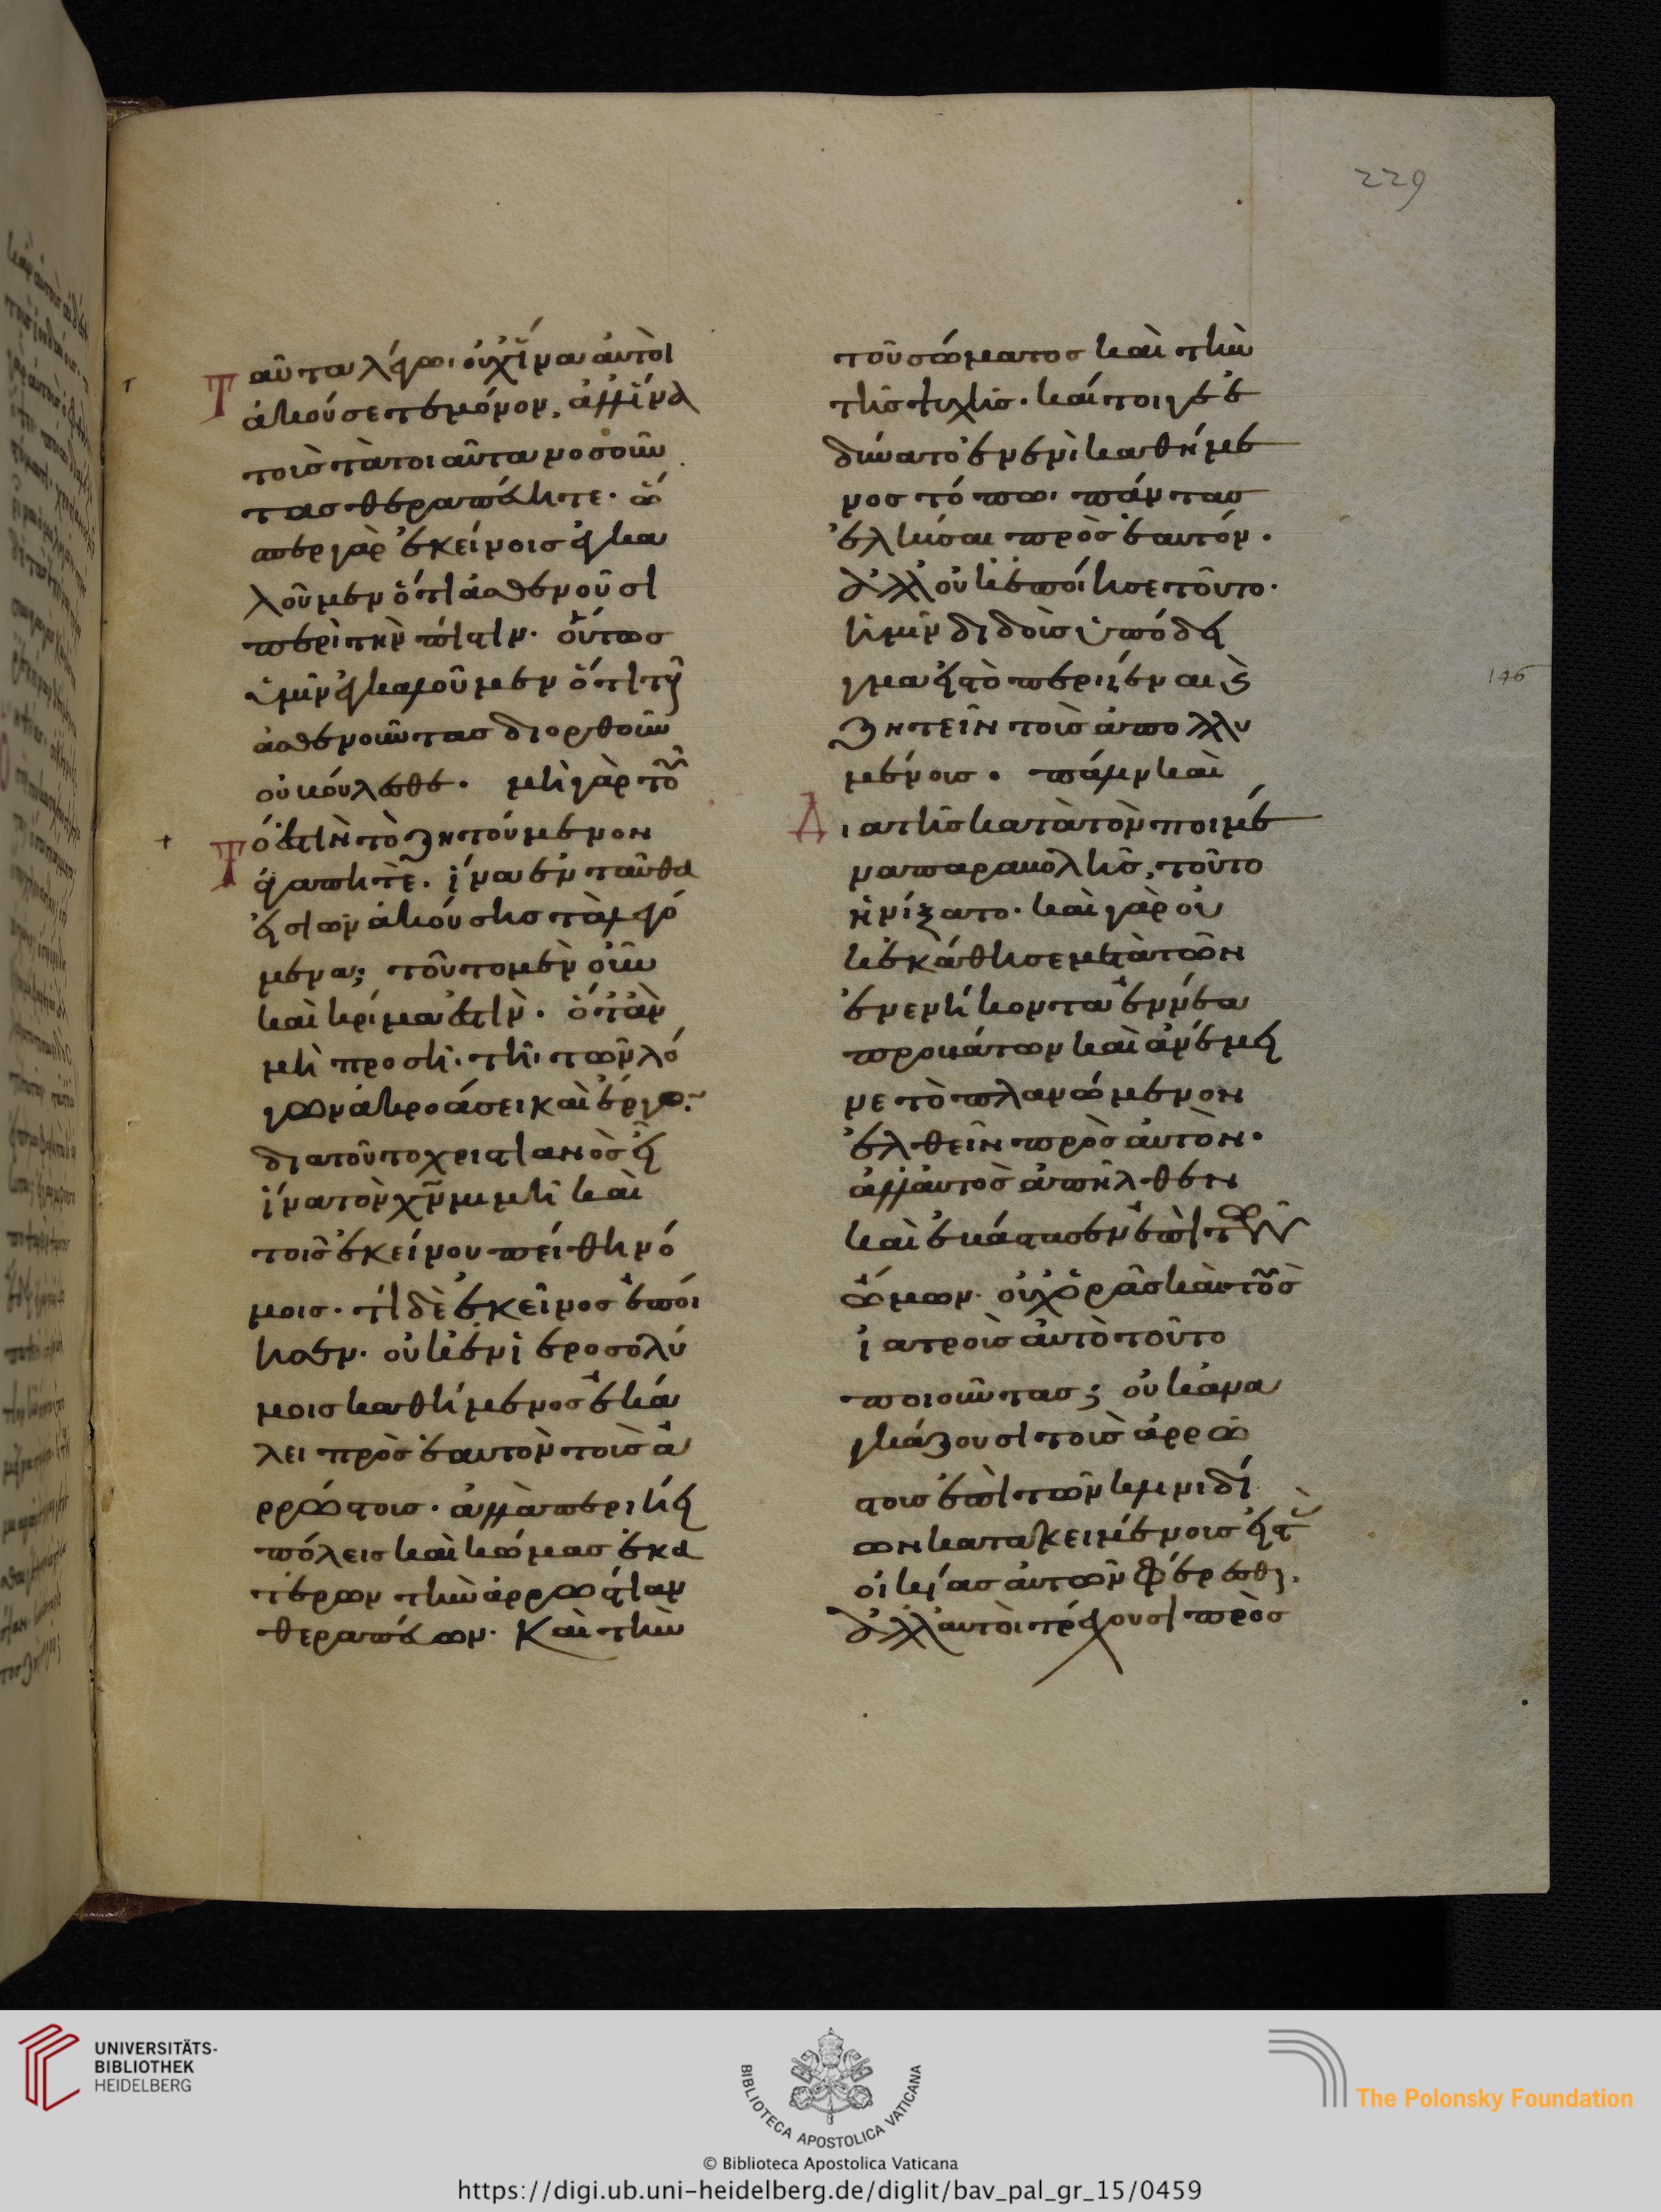 Ταῦτα λέγω· οὐχ ἵνα αὐτοὶ
ἀκούσετε μόνον, ἀλλ' ἵνα
τοὺς τὰ τοιαῦτα νοσοῦν
τας θεραπεύητε. ὥσ
περ γὰρ ἐκείνοις ἐγκα
λοῦμεν ὅτι ἀσθενοῦσι
περὶ τὴν πίστιν. οὕτως
ὑμῖν ἐγκαλοῦμεν ὅτι τοὺς
ἀσθενοῦντας διορθοῦν
οὐ βούλεσθε. μὴ γὰρ τοῦ
Τό ἐστὶν τὸ ζητούμενον
ἀγαπητὲ. ἵνα ἐνταῦθα
εἰσιὼν ἀκούσῃς τὰ λεγό
μενα; τοῦτο μὲν οὖν
καὶ κρίμα ἐστὶν. ὅταν
μὴ προσῆ τῆ τῶν λό
γων ἀκροάσει καὶ ἔργον.
διατοῦτο χριστιανὸς εἶ
ἵνα τὸν χν μιμῆ καὶ
τοῖς ἐκείνου πείθη νό
μοις. τί δὲ ἐκεῖνος ἐποί
ησεν. οὐκ ἐν ἱεροσολύ
μοις καθήμενος ἐκά
λει πρὸς ἑαυτὸν τοὺς ἀ
ρρώστους. ἀλλὰ περιήει
πόλεις καὶ κώμας ἑκα
τέρων τὴν ἀρρωστίαν
θεραπεύων. Καὶ τὴν
229
τοῦ σώματος καὶ τὴν
τῆς ψυχῆς. καίτοιγε ἐ
δύνατο ἐν ἑνὶ καθήμε
νος τόπω πάντας
ἑλκύσαι πρὸς ἑαυτόν.
ἀλλ' οὐκ ἐποίησε τοῦτο.
ἡμῖν διδοὺς ὑπόδει
γμα εἰς τὸ περιιέναι καὶ
ζητεῖν τοὺς ἀπολλυ
μένους. πάλιν καὶ
Διὰ τῆς κατὰ τὸν ποιμέ
να παραβολῆς, τοῦτο
ἠνίξατο. καὶ γὰρ οὐ
κ ἐκάθησε μετὰ τῶν
ἐνενήκοντα ἐννέα
προβάτων καὶ ἀνέμει
νε τὸ πλανώμενον
ἐλθεῖν πρὸς αὐτὸν.
ἀλλ' αὐτὸς ἀπῆλθεν
καὶ ἐβάστασεν ἐπὶ τῶν
ὤμων. οὐχ ὁρᾶς καὶ τοὺς
ἰατροὺς αὐτὸ τοῦτο
ποιοῦντας; οὐκ ἀνα
γκάζουσι τοὺς ἀρρώ
στους ἐπὶ τῶν κλινιδί
ων κατακειμένους εἰς τὰς
οἰκίας αὐτῶν φέρεσθαι.
ἀλλ' αὐτοὶ τρέχουσι πρὸς
146
UNIVERSITÄTS-
BIBLIOTHEK
HEIDELBERG
BIBLIOTECA APOSTOLICA VATICANA
The Polonsky Foundation
© Biblioteca Apostolica Vaticana
https://digi.ub.uni-heidelberg.de/diglit/bav_pal_gr_15/0459